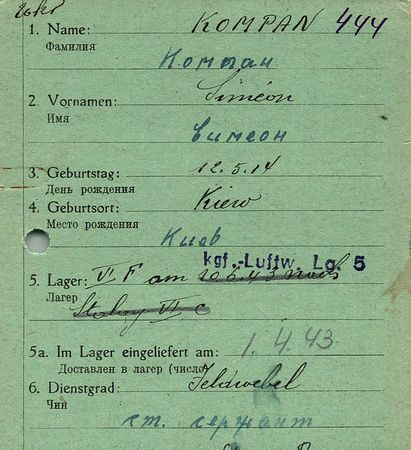 1. Name: KOMPAN 444
Фамилия
Компан
2. Vornamen: Siméon
Имя
Симеон
3. Geburtstag: 12.5.14
День рождения
4. Geburtsort: Kiew
Место рождения
Киев
kgf.-Luftw. Lg. 5
5. Lager: VI F am 10.6.43 nach
Лагер
Stalag VI C
5a. Im Lager eingeliefert am: 1.4.43
Доставлен в лагер (число)
6. Dienstgrad: Feldwebel
Чин
ст. сержант